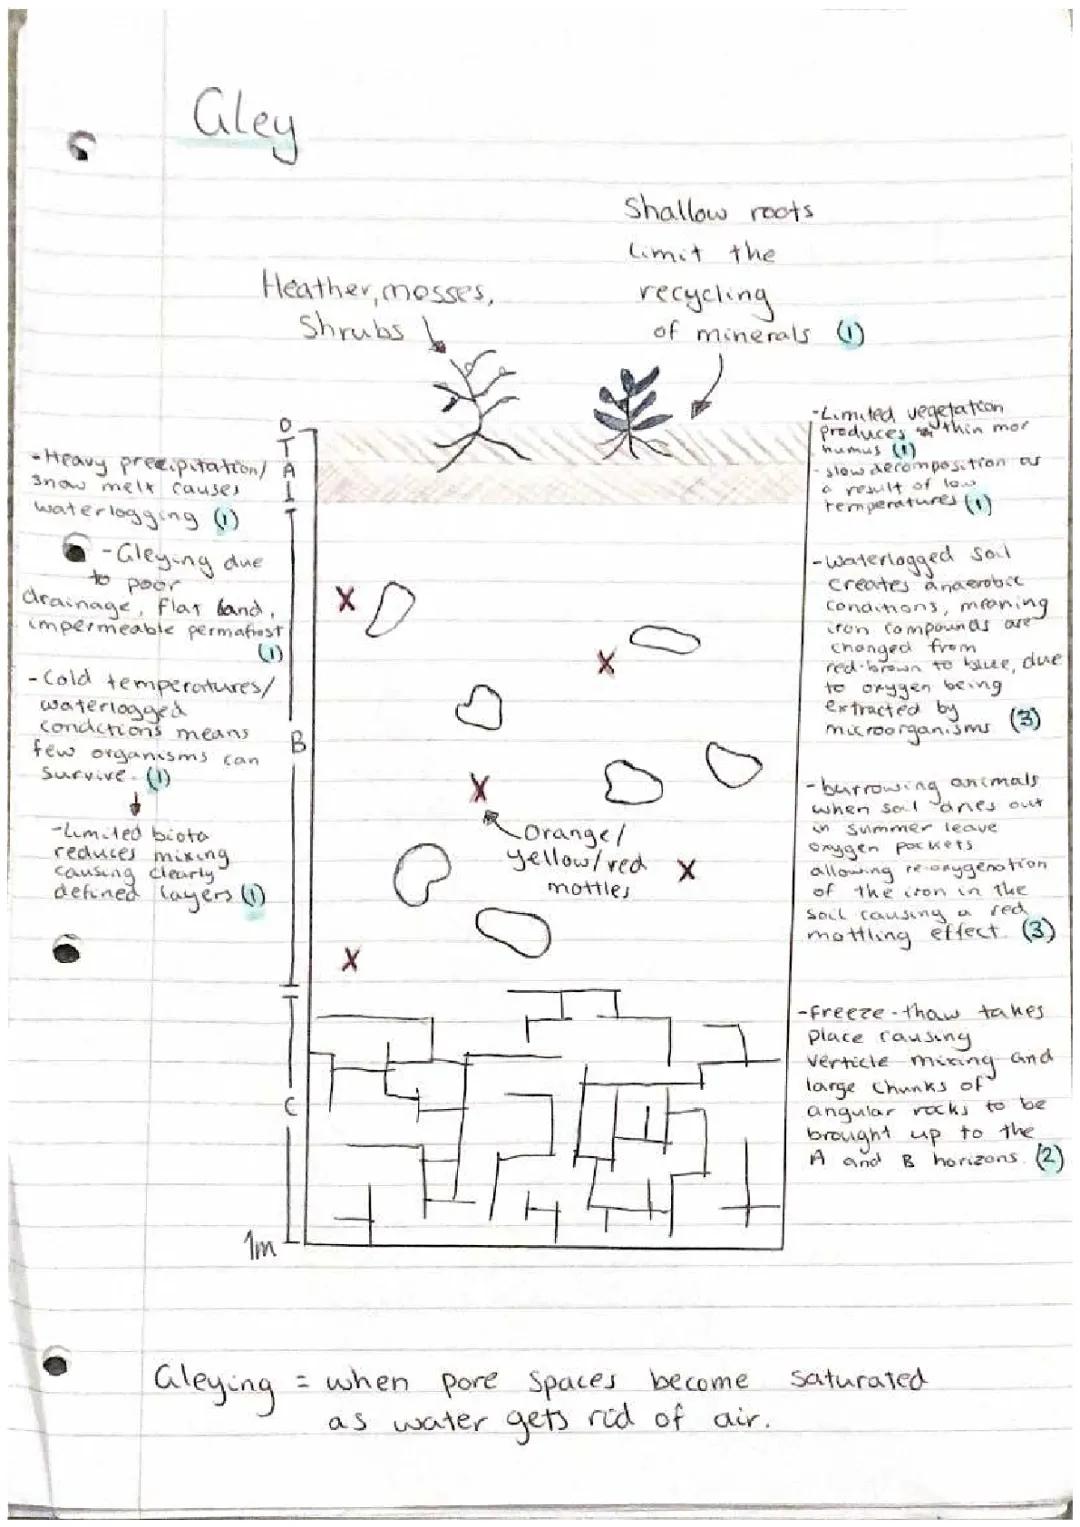 Gley
Shallow roots
limit the
recycling
of minerals (1)
Heather, mosses,
Shrubs
0
A
B
C
1m
-Heavy precipitation/
snow melt causes
waterlogging (1)
-Gleying due
to poor
drainage, flat land,
impermeable permafrost
(1)
-Cold temperatures/
waterlogged
conditions means
few organisms can
survive. (1)
-Limited biota
reduces mixing
causing clearly
defined layers (1)
X
X
X
Orange/
yellow/red
mottles
X
X
-Limited vegetation
produces thin mor
humus (1)
-slow decomposition as
a result of low
temperatures (1)
-Waterlogged soil
creates anaerobic
conditions, meaning
iron compounds are
changed from
red-brown to blue, due
to oxygen being
extracted by
microorganisms (3)
-burrowing animals
when soil dries out
in summer leave
oxygen pockets
allowing re-oxygenation
of the iron in the
soil causing a red
mottling effect. (3)
-Freeze-thaw takes
place causing
verticle mixing and
large chunks of
angular rocks to be
brought up to the
A and B horizons. (2)
Gleying = when pore spaces become saturated
as water gets rid of air.